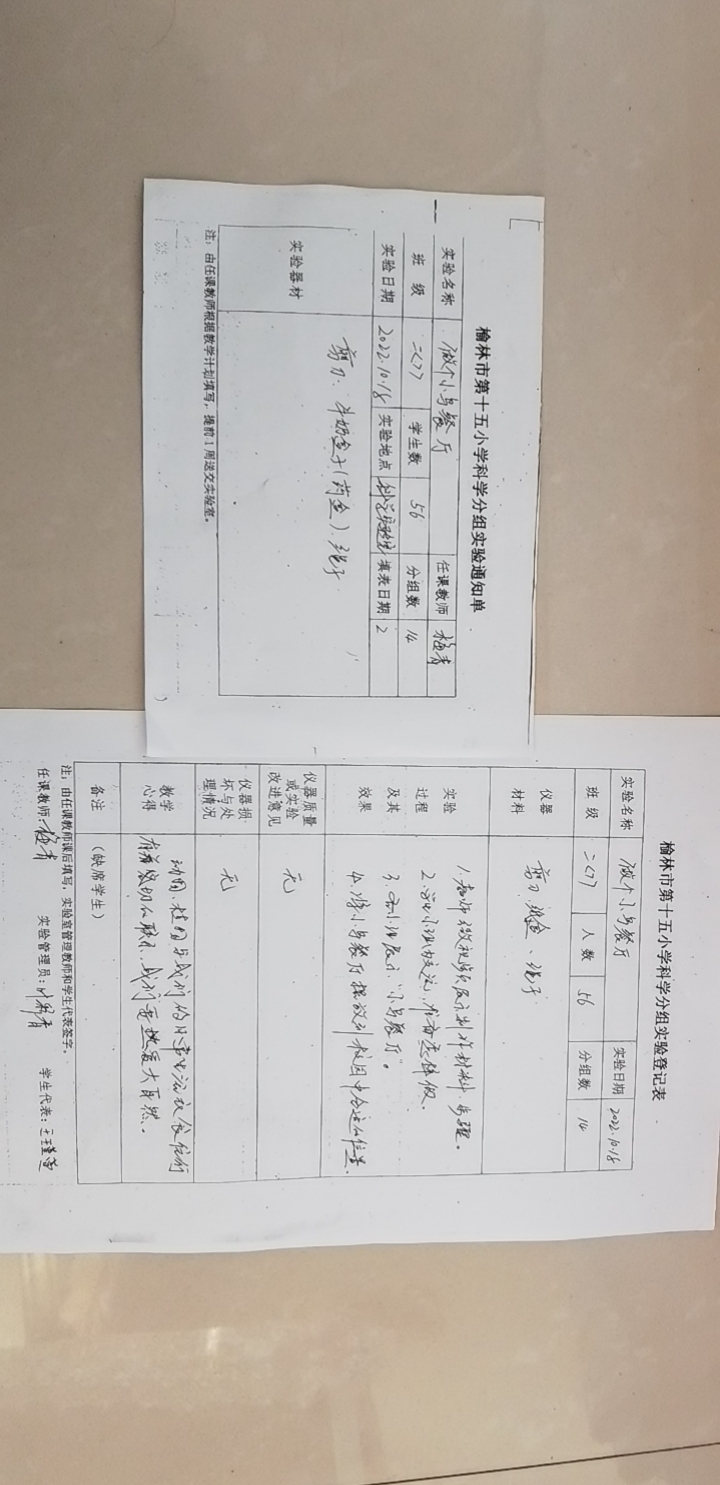 榆林市第十五小学科学分组实验通知单
实验名称 做个小鸟餐厅 任课教师
班级 二<7> 学生数 56 分组数 14
实验日期 2022.10.18 实验地点 科学实验室 填表日期 2
实验器材 剪刀、牛奶盒子(药盒)、绳子
注：由任课教师根据教学计划填写，提前1周送交实验室。
榆林市第十五小学科学分组实验登记表
实验名称 做个小鸟餐厅 实验日期 2022.10.18
班级 二<7> 人数 56 分组数 14
仪器材料 剪刀、纸盒、绳子
实验过程及其效果
1.老师微视频展示制作材料、步骤。
2.
3. 小组展示"小鸟餐厅"。
4.将小鸟餐厅摆放到校园中合适的位置。
仪器质量或实验改进意见 无
仪器损坏与处理情况 无
教学心得 动物、植物与我们的日常生活衣食住行
有着密切的联系，我们要热爱大自然。
备注 (缺席学生)
注：由任课教师课后填写，实验室管理教师和学生代表签字。
任课教师： 实验管理员： 学生代表：